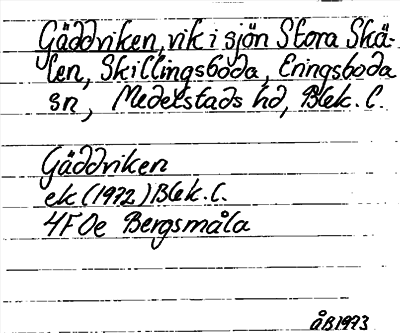 Gäddviken, vik i sjön Stora Skä-
len, Skillingsboda, Eringsboda
sn, Medelstads hd, Blek. l.
Gäddviken
ek (1972) Blek. l.
4F 0e Bergsmåla
åB1973